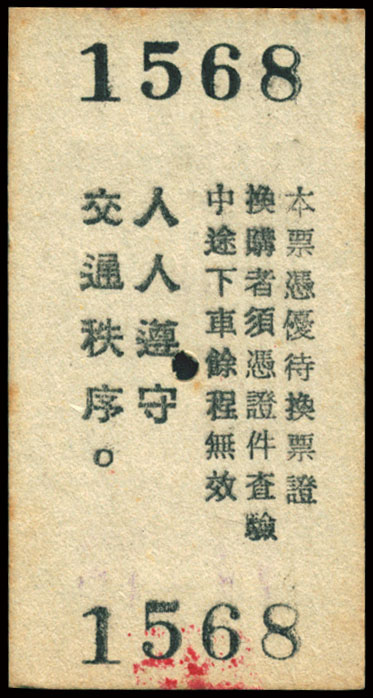 1568
本票憑優待換票證
換購者須憑證件查驗
中途下車餘程無效
人人遵守
交通秩序。
1568